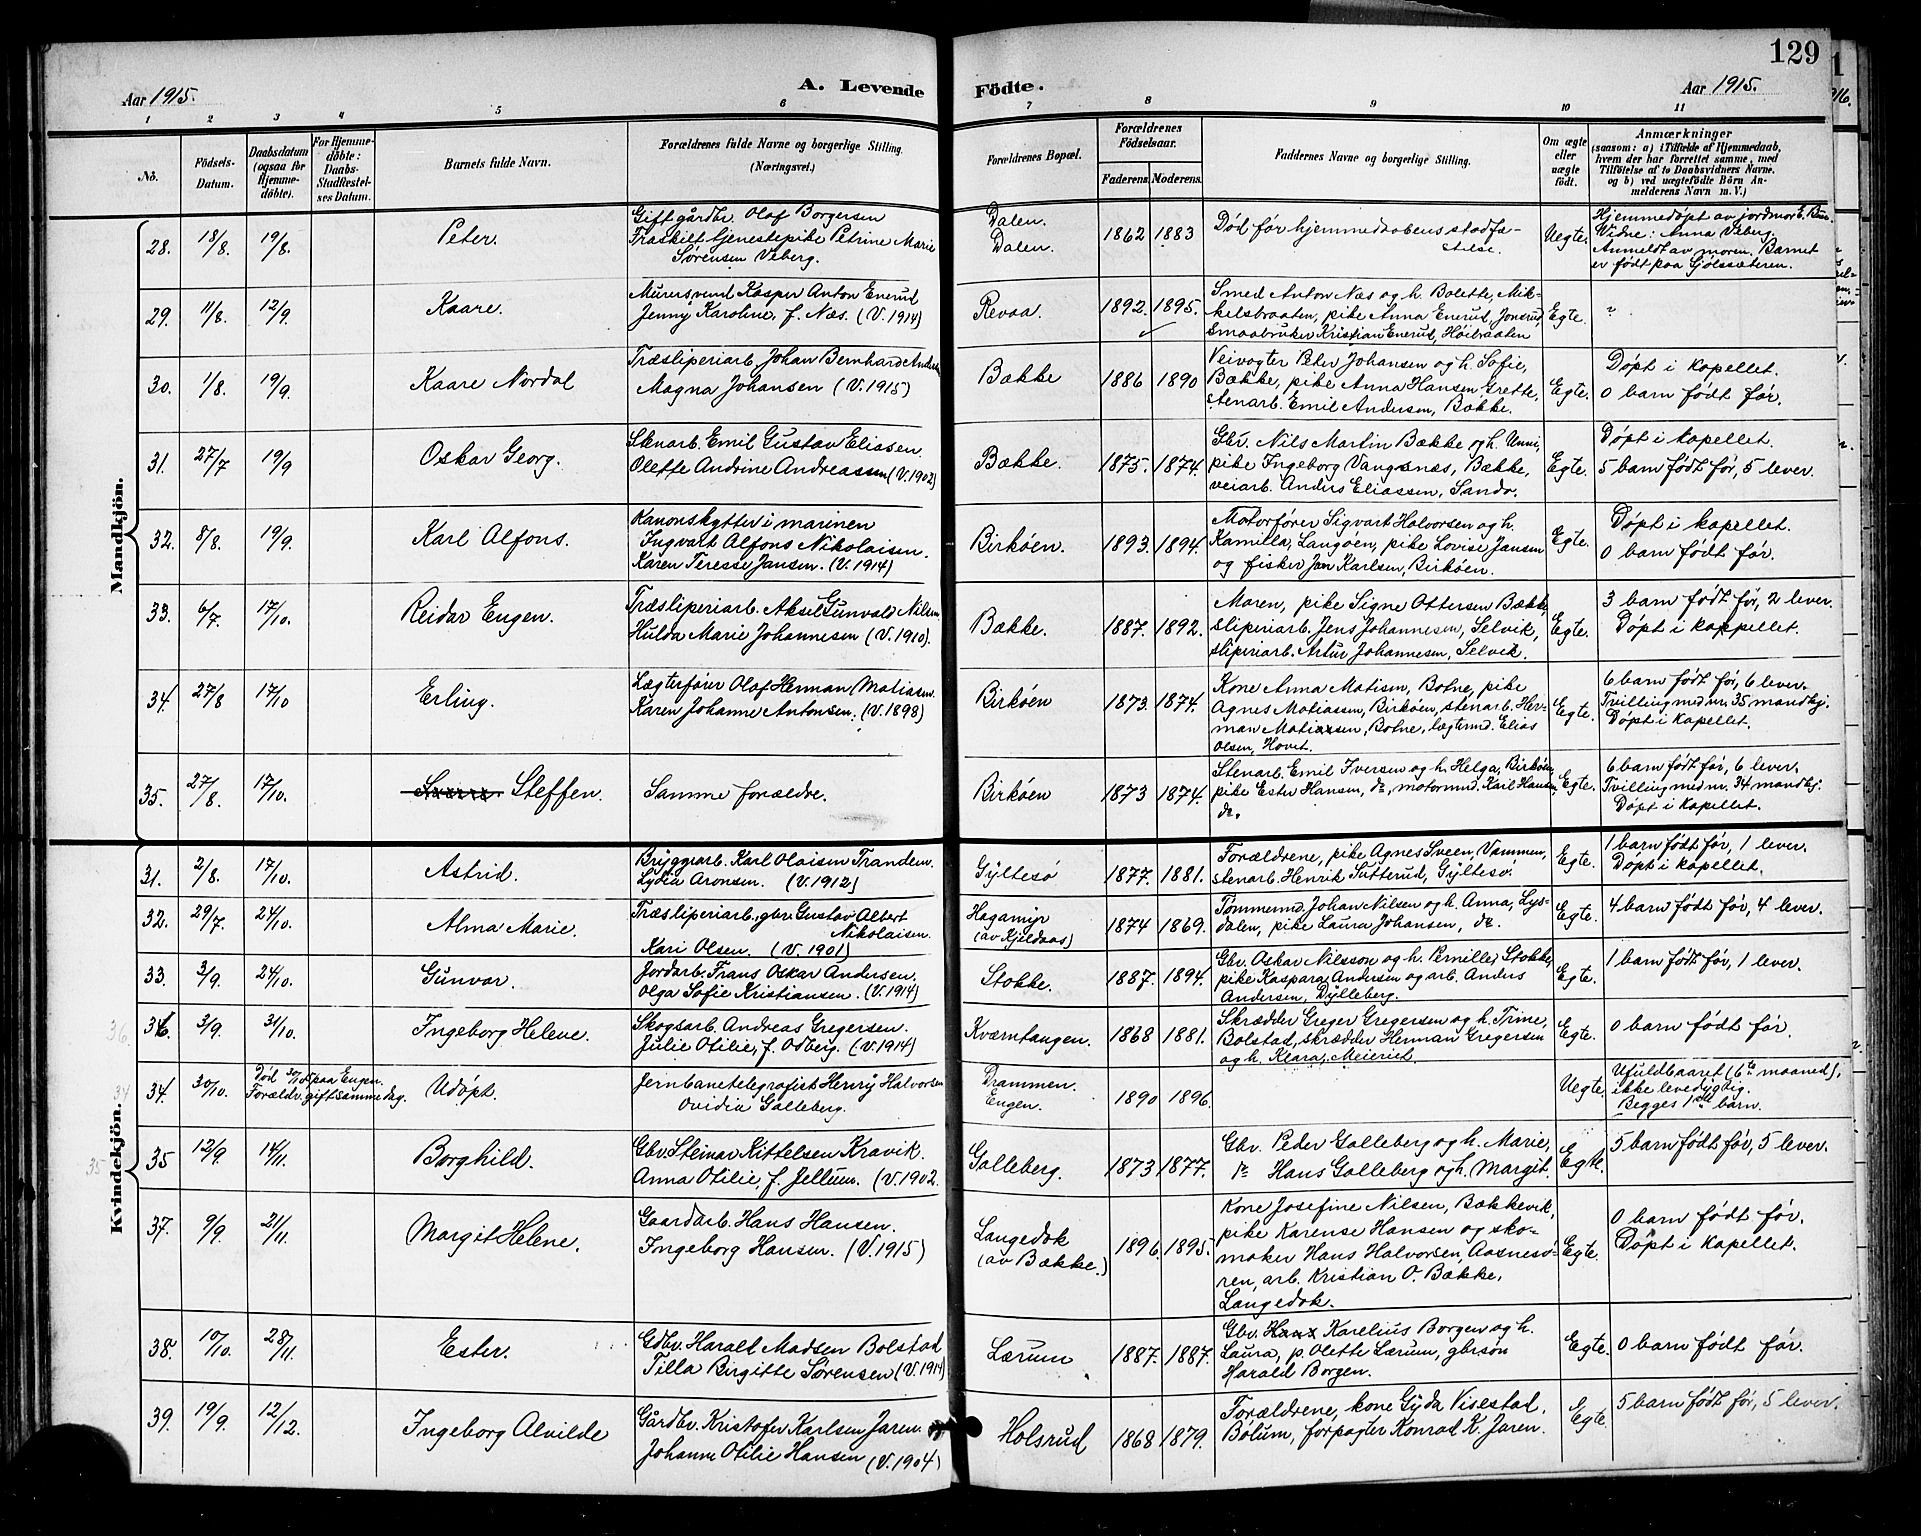 129
Aar 1915.
A. Levende Födte.
Aar 1915.
1 2 3 4 5 6 7 8 9 10 11
No.
Födsels-Datum.
Daabsdatum (ogsaa for Hjemme-döbte).
For Hjemme-döbte: Daabs-Stadfæstel-ses Datum.
Barnets fulde Navn.
Forældrenes fulde Navne og borgerlige Stilling.
(Næringsvei.)
Forældrenes Bopæl.
Forældrenes Födselsaar.
Faderens. Moderens.
Faddernes Navne og borgerlige Stilling.
Om ægte eller uægte födt.
Anmærkninger
(saasom: a) i Tilfælde af Hjemmedaab,
hvem der har forrettet samme, med
Tilföielse af to Daabsvidners Navne.
og b) ved uægtefödte Börn An-
melderens Navn m. V.)
Mandkjön.
28. 18/8. 19/8. Peter.
Gift gårdbr. Olaf Borgersen
Fraskilt tjenestepike Petrine Marie
Sørensen Viberg.
Dalen.
Dalen.
1862 1883
Død før hjemmedaabens stadfæ-
stelse.
Uegte.
Hjemmedøpt av jordmor E. Bus.
Widne: Anna Viberg.
Anmeldt av moren. Barnet
er født paa Gjølssæteren.
29. 11/8. 12/9. Kaare.
Murersvend Kasper Anton Enerud
Jenny Karoline, f. Næs. (V. 1914)
Revaa.
1892. 1895.
Smed Anton Næs og h. Bolette, Mik-
kelsbraaten, pike Anna Enerud, Jonsrud,
smaabruker Kristian Enerud, Høibraaten
Egte.
"
30. 1/8. 19/9. Kaare Nordal
Træsliperiarb. Johan Bernhard Andersen
Magna Johansen (V. 1915)
Bække
1886 1890
Veivogter Peter Johansen og h. Sofie,
Bække, pike Anna Hansen, Grette,
stenarb. Emil Andersen, Bække.
Egte.
Døpt i kapellet.
0 barn født før.
31. 27/7 19/9 Oskar Georg.
Stenarb. Emil Gustav Eliasen.
Olette Andrine Andreassen (V. 1902)
Bække.
1875. 1874.
Gbr. Nils Martin Bække og h. Unni,
pike Ingeborg Vangsnæs, Bække,
veiarb. Anders Eliassen, Sando.
Egte.
Døpt i kapellet.
5 barn født før, 5 lever.
32. 8/8. 19/9. Karl Alfons.
Kanonskytter i marinen
Ingvart Alfons Nikolaisen.
Karen Teresse Jansen. (V. 1914)
Birkøen.
1893. 1894.
Motorfører Sigvart Halvorsen og h.
Kamilla, Langøen, pike Lovise Jansen
og fisker Jan Karlsen, Birkøen.
Egte.
Døpt i kapellet.
0 barn født før.
33. 6/7. 17/10. Reidar Engen.
Træsliperiarb. Aksel Gunvald Nilsen
Hulda Marie Johannesen (V. 1910).
Bække.
1887. 1892.
Maren, pike Signe Ottersen Bække,
sliperiarb. Jens Johannesen, Selvik,
sliperiarb. Artur Johannesen, Selvik.
Egte.
3 barn født før, 2 lever.
Døpt i kappellet.
34. 27/8 17/10 Erling.
Lægterfører Olaf Herman Matiasen.
Karen Johanne Antonsen. (V. 1898)
Birkøen
1873. 1874.
Kone Anna Matisen, Botne, pike
Agnes Matiassen, Birkøen, stenarb. Her-
man Matiassen, Botne, lægtermd. Elias
Olsen, Hovet.
Egte.
6 barn født før, 6 lever.
Tvilling med nr. 35 mandkj.
Døpt i kapellet.
35. 27/8. 17/10. Sverre. Steffen.
Samme forældre.
Birkøen
1873 1874.
Stenarb. Emil Iversen og h. Helga, Birkøen,
pike Ester Hansen, do, motormd. Karl Hansen,
do.
Egte.
6 barn født før, 6 lever.
Tvilling med nr. 34 mandkj.
Døpt i kapellet.
Kvindekjön.
31. 2/8. 17/10. Astrid.
Bryggarb. Karl Olaisen Tranden.
Lydia Aronsen. (V. 1912)
Gyltesø
1877. 1881.
Forældrene, pike Agnes Sveen, Vammen,
stenarb. Henrik Sutterud, Gyltesø.
Egte.
1 barn født før, 1 lever.
Døpt i kapellet.
32. 29/7. 24/10. Alma Marie.
Træsliperiarb., gbr. Gustav Albert
Nikolaisen.
Kari Olsen. (V. 1901)
Hagamyr
(av Kjeldaas)
1874 1869.
Tømmermd. Johan Nilsen og h. Anna, Lys-
dalen, pike Laura Johansen, do.
Egte.
4 barn født før, 4 lever.
33. 3/9. 24/10. Gunvor.
Jordarb. Frans Oskar Andersen.
Olga Sofie Kristiansen. (V. 1914)
Stokke.
1887. 1894.
Gbr. Oskar Nilsson og h. Pernille, Stokke,
pike Kaspara Andersen og arb. Anders
Andersen, Dylleberg.
Egte.
1 barn født før, 1 lever.
36. 36. 3/9. 31/10. Ingeborg Helene.
Skogsarb. Andreas Gregersen.
Julie Otilie, f. Odberg. (V. 1914)
Kværntangen.
1868 1881.
Skrædder Greger Gregersen og h. Trine,
Bolstad, skrædder Herman Gregersen
og h. Klara, Meieriet.
Egte.
0 barn født før.
34 34. 30/10. Død 30/10 paa Engen.
Forældr. gift samme dag.
Udøpt.
Jernbanetelegrafist Henry Halvorsen
Ovidia Galleberg.
Drammen.
Engen.
1890 1896.
Uegte.
Ufuldbaaret (6te maaned),
ikke levedygtig.
Begges 1ste barn.
35 35 12/9. 14/11. Borghild.
Gbr. Steinar Kittelsen Kravik.
Anna Otilie, f. Jellum. (V. 1902.
Galleberg.
1873 1877.
Gbr. Peder Galleberg og h. Marie,
do Hans Galleberg og h. Margit.
Egte.
5 barn født før, 5 lever.
37. 9/9. 21/11. Margit Helene.
Gaardarb. Hans Hansen.
Ingeborg Hansen. (V. 1915)
Langedok
(av Bække.)
1896. 1895.
Kone Josefine Nilsen, Bækkevik,
pike Karense Hansen og sko-
maker Hans Halvorsen, Aasnesø-
ren, arb. Kristian O. Bække,
Langedok.
Egte.
0 barn født før.
Døpt i kapellet.
38. 10/10. 28/11. Ester.
Gdbr. Haralt Madsen Bolstad
Tilla Birgitte Sørensen (V. 1914)
Lærum
1887. 1887.
Gbr. Hans Karelius Borgen og h.
Laura, p. Olette Lærum, gbrsøn
Harald Borgen.
Egte.
0 barn født før.
39. 19/9. 12/12. Ingeborg Alvilde
Gårdbr. Kristofer Karlsen Jaren. og
Johanne Otilie Hansen (V. 1904)
Holsrud
1868 1879.
Forældrene, kone Gyda Visestad,
Bolum, forpagter Konrad K. Jaren.
Egte.
5 barn født før, 5 lever.